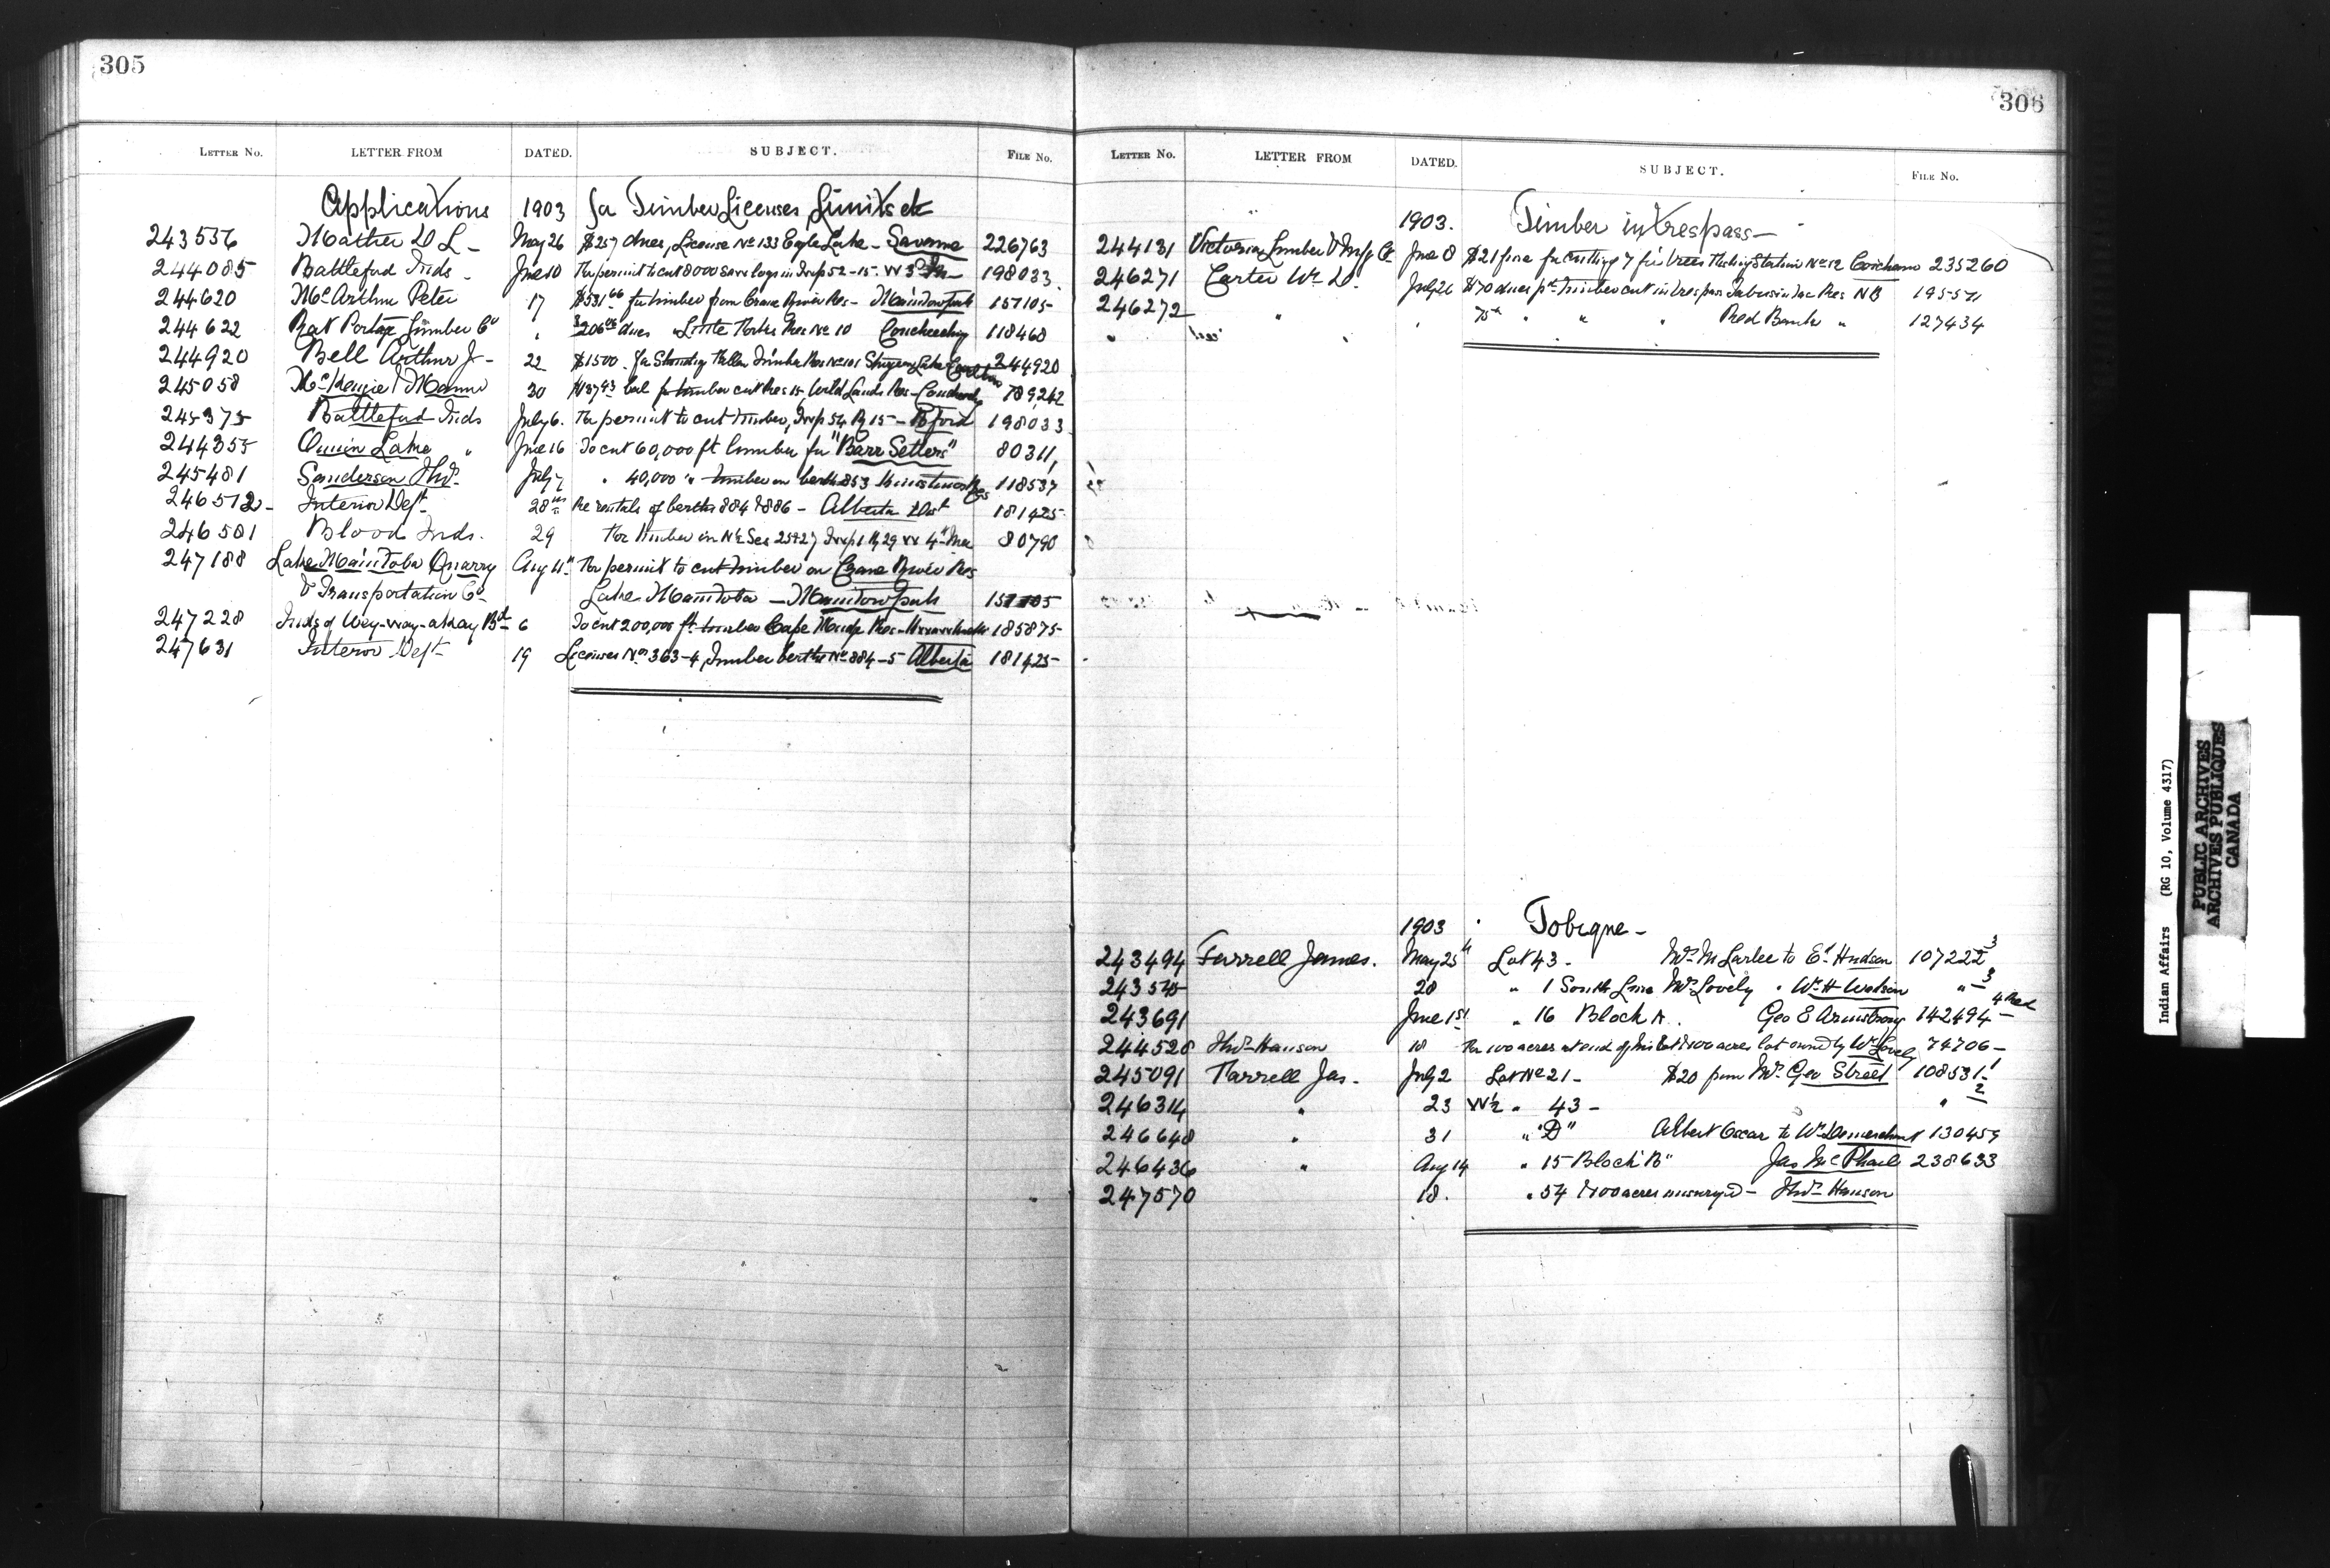 305
LETTER No. LETTER FROM DATED. SUBJECT. FILE No.
Applications 1903 for Timber Licenses Limits etc
243556 Mather D L - May 26 $257 dues, License No 133 Eagle Lake - Savanne 226763
244085 Battleford Inds - June 10 For permit to cut 8000 saw logs in Twp 52-15-W 3rd M 198033
244620 McArthur Peter 17 $531 66 for timber from Crane River Res - Manitowpah 157105
244622 Rat Portage Lumber Co " $206 06 dues Little Forks Res No 10 Coucheeching 118460
244920 Bell Arthur J - 22 $1500. for Standing & fallen Timber Res No 101 Sturgeon Lake Carlton 244920
245058 McKenzie & Mann 30 bal for timber cut Res 15, Wild Lands Res - Couchechg 189242
245375 Battleford Inds July 6. For permit to cut timber, Twp 54 Rg 15 - Bford 198033
244355 Onion Lake " June 16 To cut 60,000 ft lumber for "Barr Settlers" 80311,
245481 Sanderson Thos. July 7 " 40,000 " timber on berth 853 Kinistino Res 118537
246512 - Interior Dept 28th Re rentals of berths 884 & 886 - Alberta Dist 181425
246581 Blood Inds. 29 For timber in N½ Sec 25 & 27 Twp 1 Rg 29 W 4th Mer 80790
247188 Lake Manitoba Quarry Aug 11" For permit to cut timber on Crane River Res
& Transportation Co Lake Manitoba - Manitowpah 157105
247228 Inds of Wey-way-a-kay Bd 6 To cut 200,000 ft timber Cape Mudge Res - 185875
247631 Interior Dept 19 Licenses Nos 363-4, Timber berths No 884-5 Alberta 181425
306
LETTER No. LETTER FROM DATED. SUBJECT. FILE No.
1903. Timber in trespass -
244131 Victoria Lumber & Mnfg Co June 8 $21 fine for cutting 7 fir trees Fishing Station No 12 Cowichan 235260
246271 Carter Wm D. July 26 $70 dues pt timber cut in trespass Tabusintac Res NB 195571
246272 " " 75 " " " Red Bank " 127434
1903 Tobique -
243494 Farrell James. May 25th Lot 43 - Mrs M Larlee to Ed Hudson 107222 3
243545 28 " 1 South Line Mrs Lovely " Wm H Watson " 3
243691 June 1st " 16 Block A. Geo E Armstrong 142494 -
244528 Thos Hanson 18 For 100 acres at end of his lot & 100 acres lot owned by Wm Lovely 74706 -
245091 Farrell Jas - July 2 Lot No 21 - $20 from Mrs Geo Street 108531 1
246314 " 23 W½ " 43 - " 2
246648 " 31 " "D" Albert Oscar to Wm Demerchant 130459
246436 " Aug 14 " 15 Block "B" Jas McPhail 238633
247570 18. " 54 & 100 acres unsurveyed - Thos Hanson
Indian Affairs (RG 10, Volume 4317)
PUBLIC ARCHIVES
ARCHIVES PUBLIQUES
CANADA